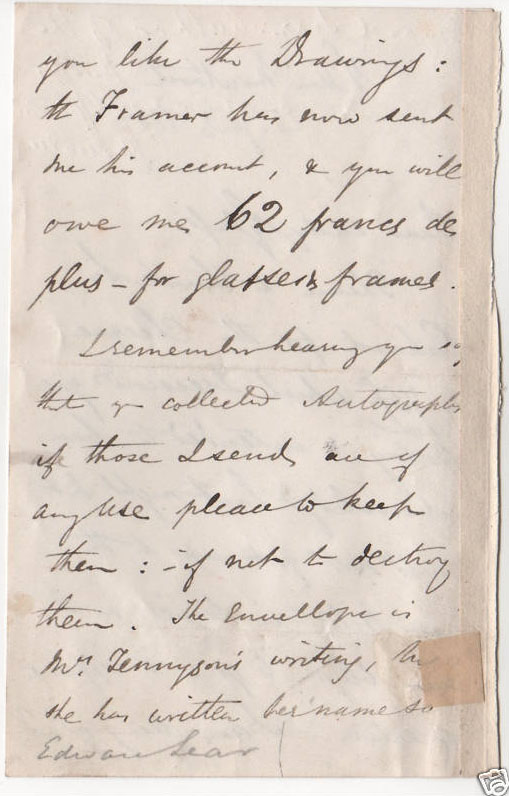 you like the Drawings :
th Framer has now sent
me his account, & you will
owe me 62 francs de
plus – for glasses & frames.
I remember hearing you say
that you collected Autographs
if those I send, are of
any use please to keep
them : – if not to destroy
them. The Envellope is
Mrs. Tennyson's writing,
she has written her name so
Edward Lear